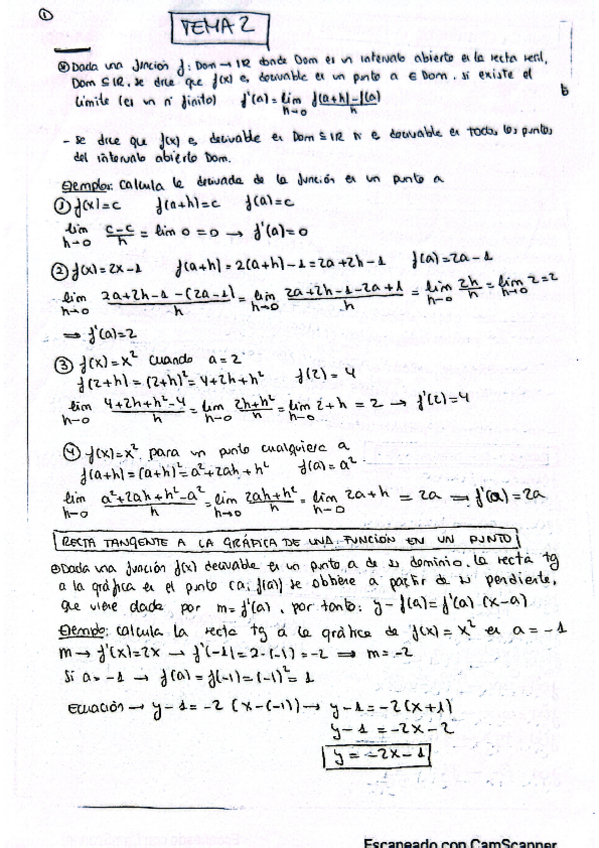 1
TEMA 2
Dada una función f: Dom → IR donde Dom es un intervalo abierto en la recta real,
Dom ⊆ IR, se dice que f(x) es derivable en un punto a ∈ Dom. si existe el
límite (es un nº finito) f'(a) = lim h→0 f(a+h)-f(a) / h
- se dice que f(x) es derivable en Dom ⊆ IR si es derivable en todos los puntos
del intervalo abierto Dom.
Ejemplo: Calcula la derivada de la función en un punto a
1 f(x)=c f(a+h)=c f(a)=c
lim h→0 c-c / h = lim 0 = 0 → f'(a)=0
2 f(x)=2x-1 f(a+h)=2(a+h)-1=2a+2h-1 f(a)=2a-1
lim h→0 2a+2h-1-(2a-1) / h = lim h→0 2a+2h-1-2a+1 / h = lim h→0 2h / h = lim h→0 2=2
⇒ f'(a)=2
3 f(x)=x² cuando a=2
f(2+h)=(2+h)²=4+2h+h² f(2)=4
lim h→0 4+2h+h²-4 / h = lim h→0 2h+h² / h = lim h→0 2+h = 2 → f'(2)=4
4 f(x)=x² para un punto cualquiera a
f(a+h)=(a+h)²=a²+2ah+h² f(a)=a²
lim h→0 a²+2ah+h²-a² / h = lim h→0 2ah+h² / h = lim h→0 2a+h = 2a ⇒ f'(a)=2a
RECTA TANGENTE A LA GRÁFICA DE UNA FUNCIÓN EN UN PUNTO
Dada una función f(x) derivable en un punto a de su dominio. la recta tg
a la gráfica en el punto (a, f(a)) se obtiene a partir de su pendiente,
que viene dada por m=f'(a), por tanto: y-f(a)=f'(a)·(x-a)
Ejemplo: calcula la recta tg a la gráfica de f(x)=x² en a=-1
m → f'(x)=2x → f'(-1)=2·(-1)=-2 ⇒ m=-2
Si a=-1 → f(a)=f(-1)=(-1)²=1
Ecuación → y-1=-2(x-(-1)) → y-1=-2(x+1)
y-1=-2x-2
y=-2x-1
Escaneado con CamScanner